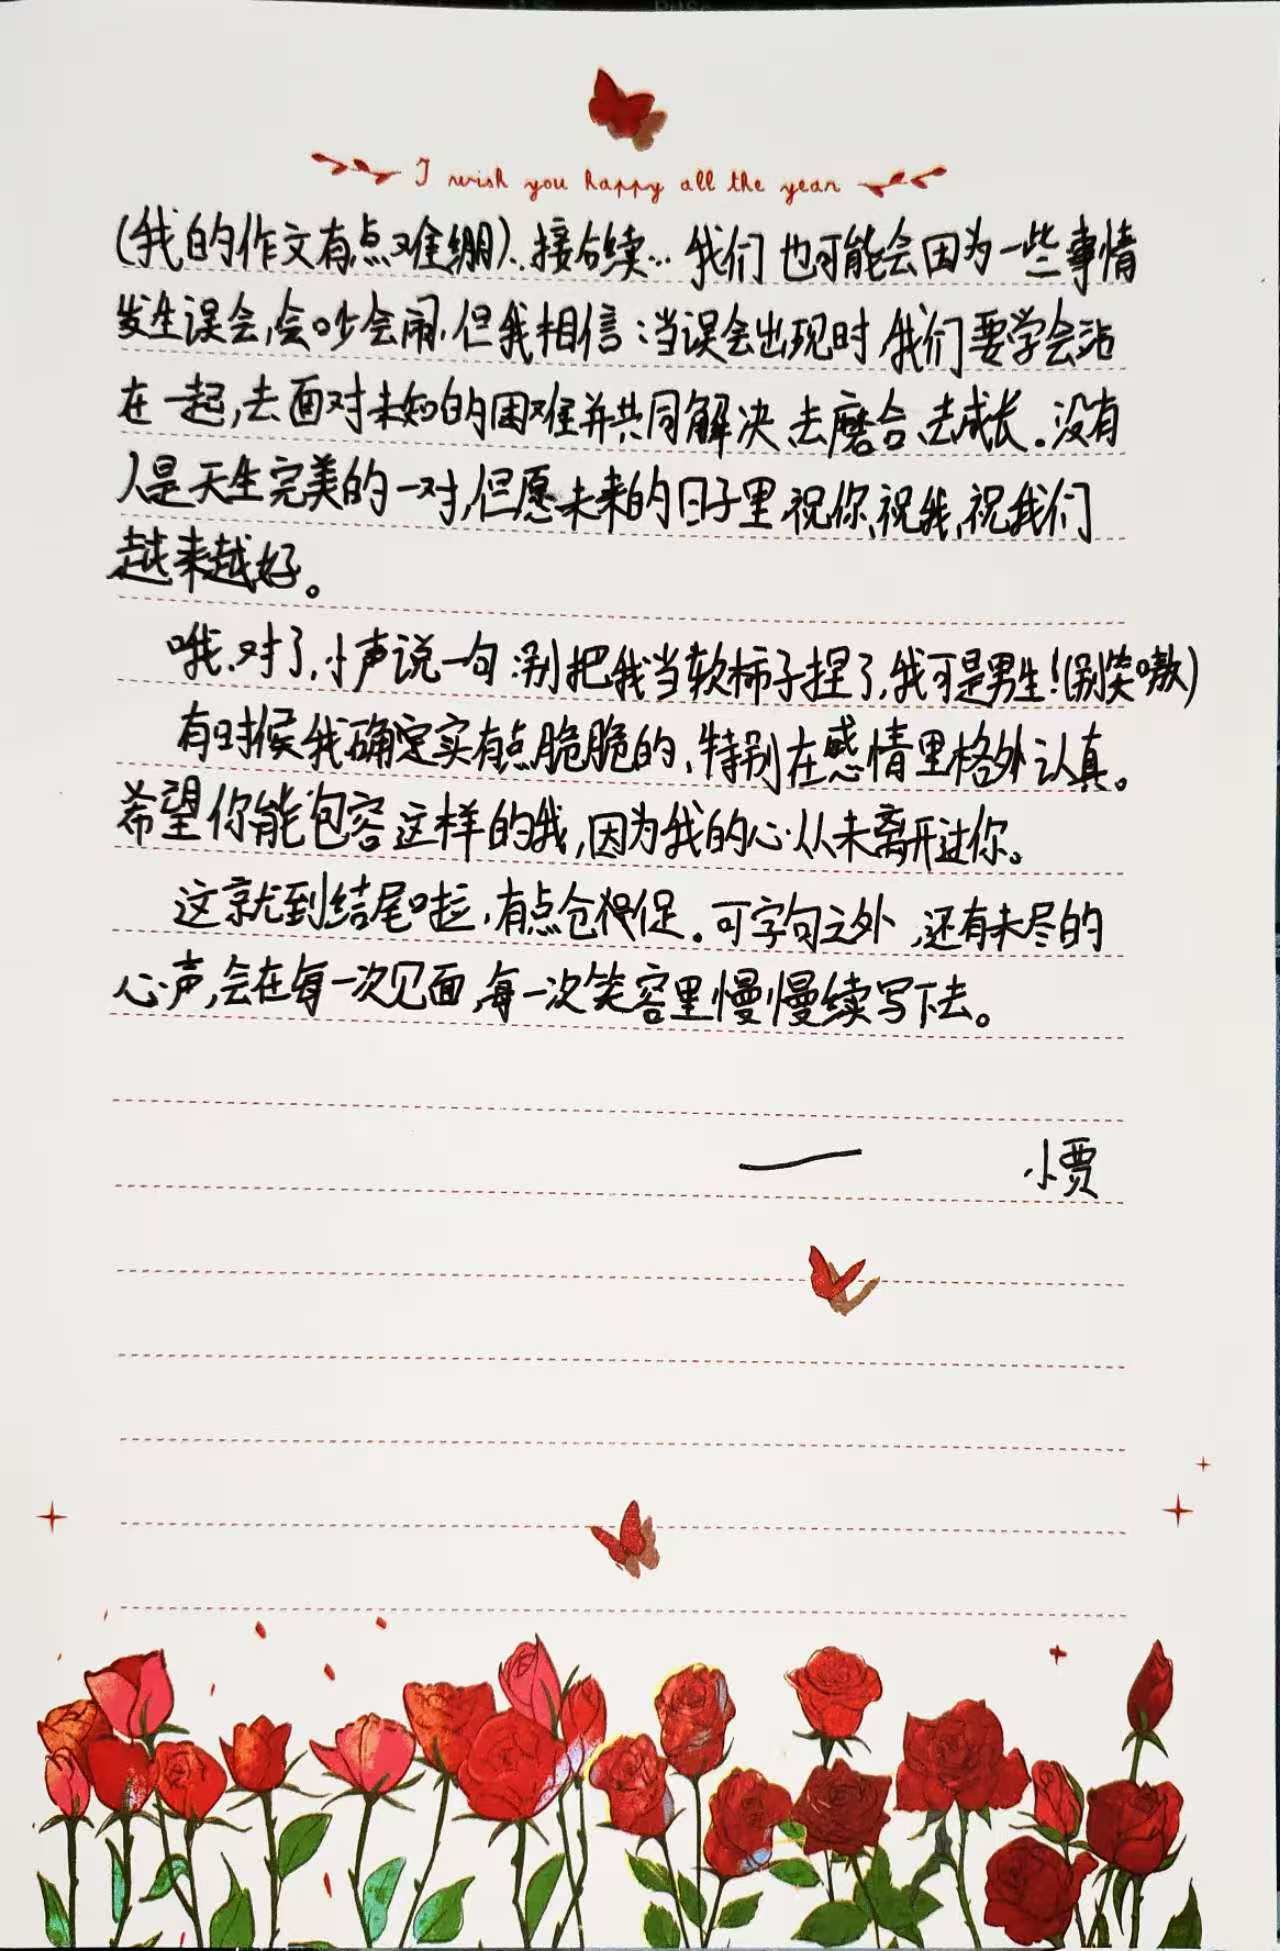 I wish you happy all the year
(我的作文有点难绷)..接后续...我们也可能会因为一些事情
发生误会,会吵会闹,但我相信:当误会出现时,我们要学会站
在一起,去面对未知的困难并共同解决、去磨合、去成长。没有
人是天生完美的一对,但愿未来的日子里,祝你,祝我,祝我们
越来越好。
哦,对了,小声说一句:别把我当软柿子捏了,我可是男生!(别笑嗷)
有时候我确定实有点脆脆的,特别在感情里格外认真。
希望你能包容这样的我,因为我的心从未离开过你。
这就到结尾啦,有点仓促。可字句之外,还有未尽的
心声,会在每一次见面,每一次笑容里慢慢续写下去。
—— 小贾